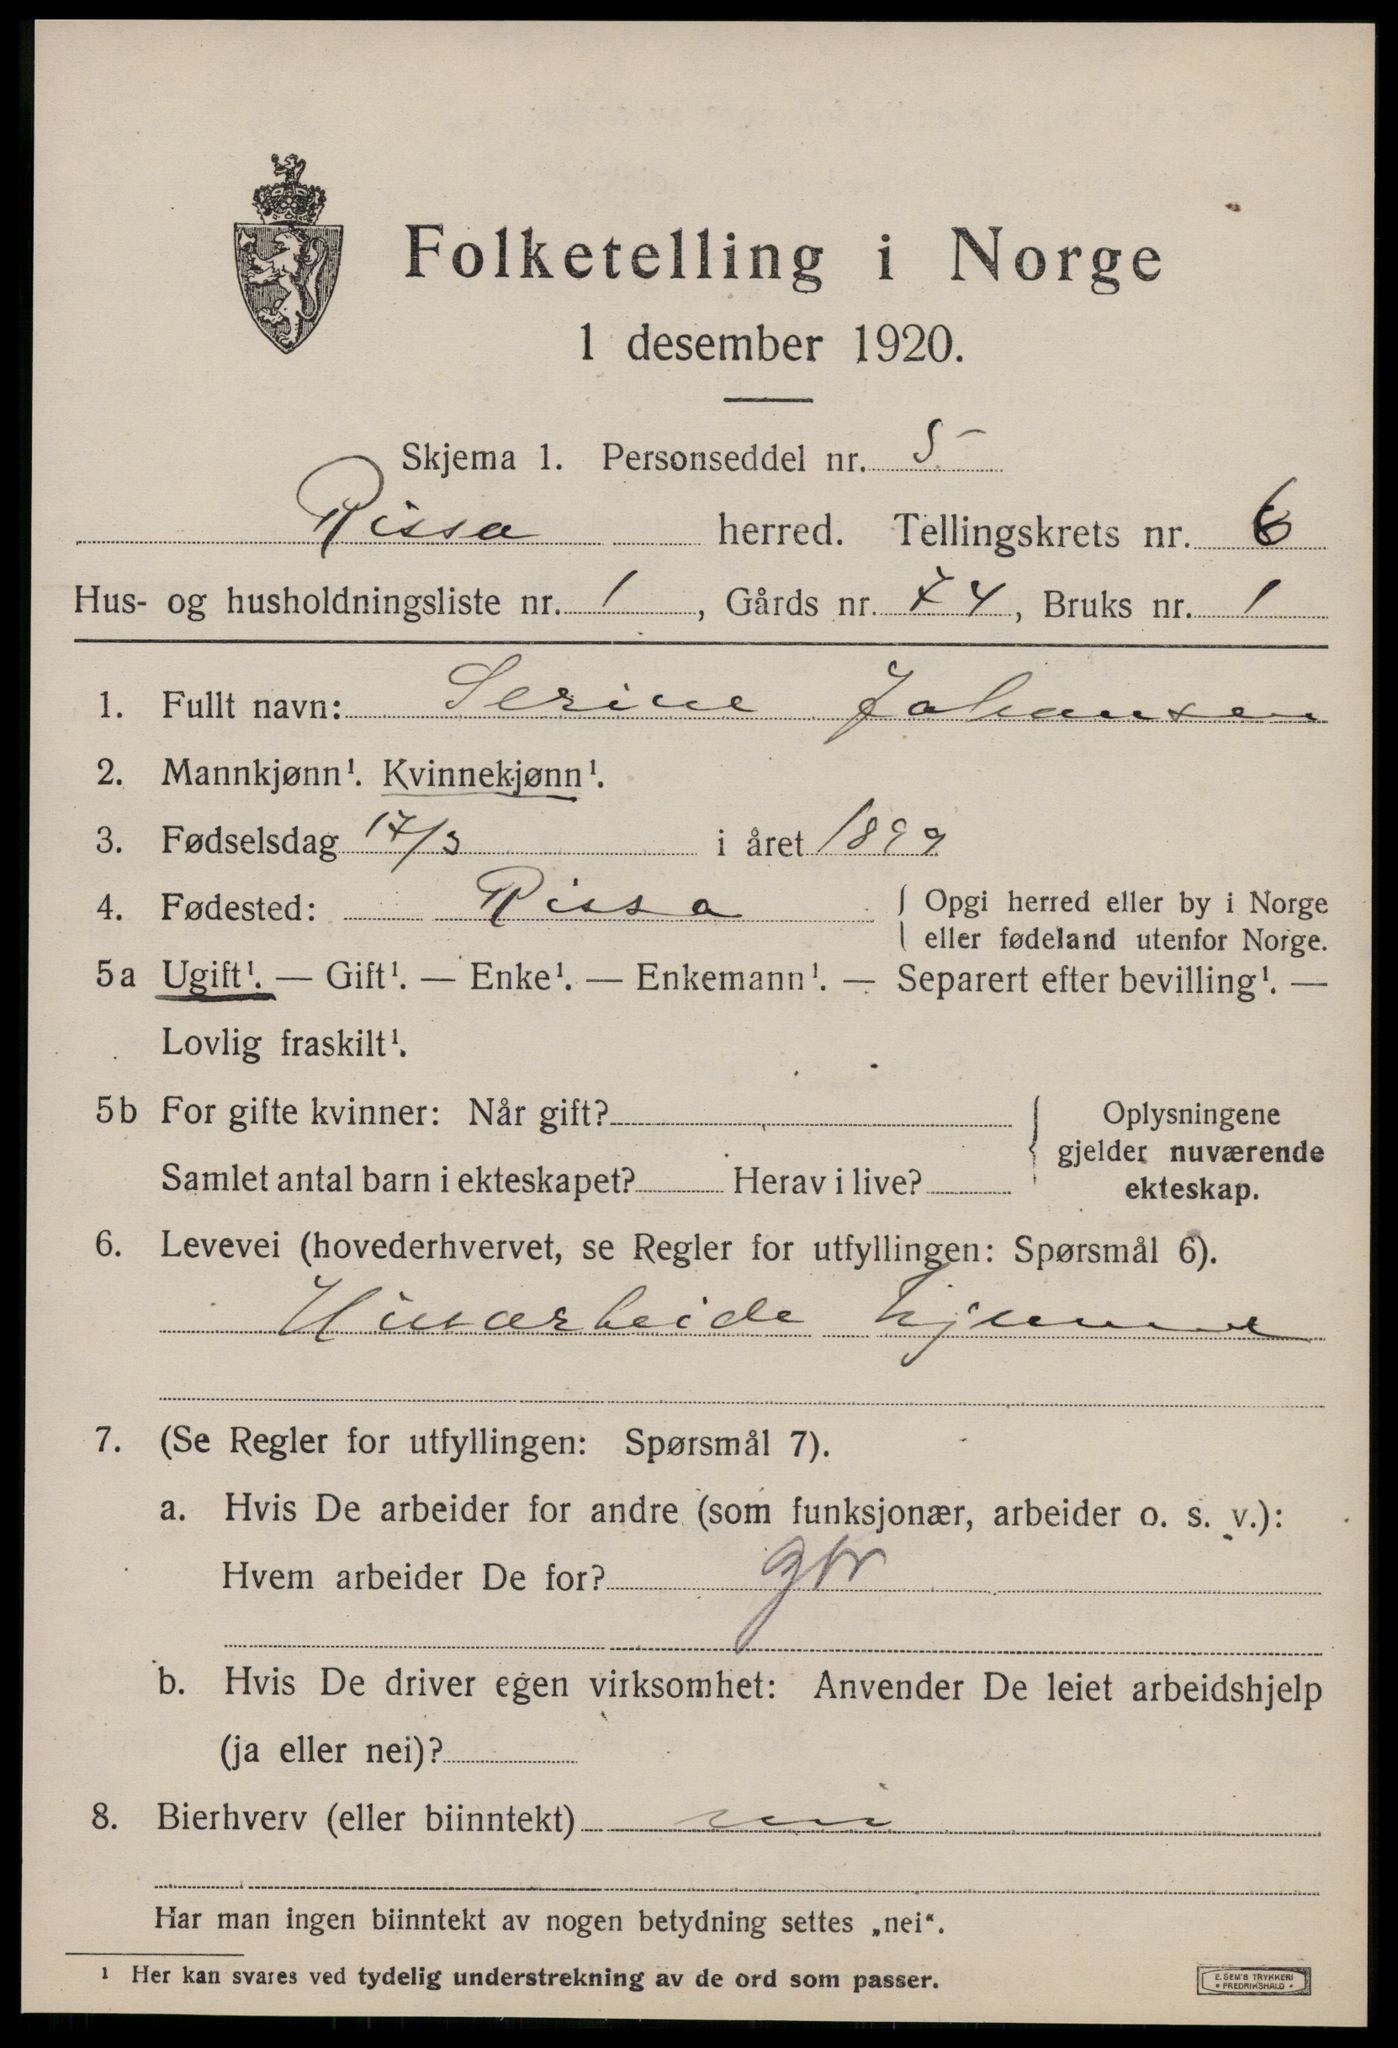 Folketelling i Norge
1 desember 1920.
Skjema 1. Personseddel nr. 5
Rissa herred. Tellingskrets nr. 6
Hus- og husholdningsliste nr. 1, Gårds nr. 74, Bruks nr. 1
1. Fullt navn: Serine Johansen
2. Mannkjønn¹. Kvinnekjønn¹.
3. Fødselsdag 17/3 i året 1899
4. Fødested: Rissa { Opgi herred eller by i Norge
eller fødeland utenfor Norge.
5a Ugift¹. — Gift¹. — Enke¹. — Enkemann¹. — Separert efter bevilling¹. —
Lovlig fraskilt¹.
5b For gifte kvinner: Når gift? { Oplysningene
gjelder nuværende
Samlet antal barn i ekteskapet? Herav i live? ekteskap.
6. Levevei (hovederhvervet, se Regler for utfyllingen: Spørsmål 6).
Husarbeide hjemme
7. (Se Regler for utfyllingen: Spørsmål 7).
a. Hvis De arbeider for andre (som funksjonær, arbeider o. s. v.):
Hvem arbeider De for?
b. Hvis De driver egen virksomhet: Anvender De leiet arbeidshjelp
(ja eller nei)?
8. Bierhverv (eller biinntekt) nei
Har man ingen biinntekt av nogen betydning settes „nei“.
¹ Her kan svares ved tydelig understrekning av de ord som passer.
E. SEM'S TRYKKERI
• FREDRIKSHALD •